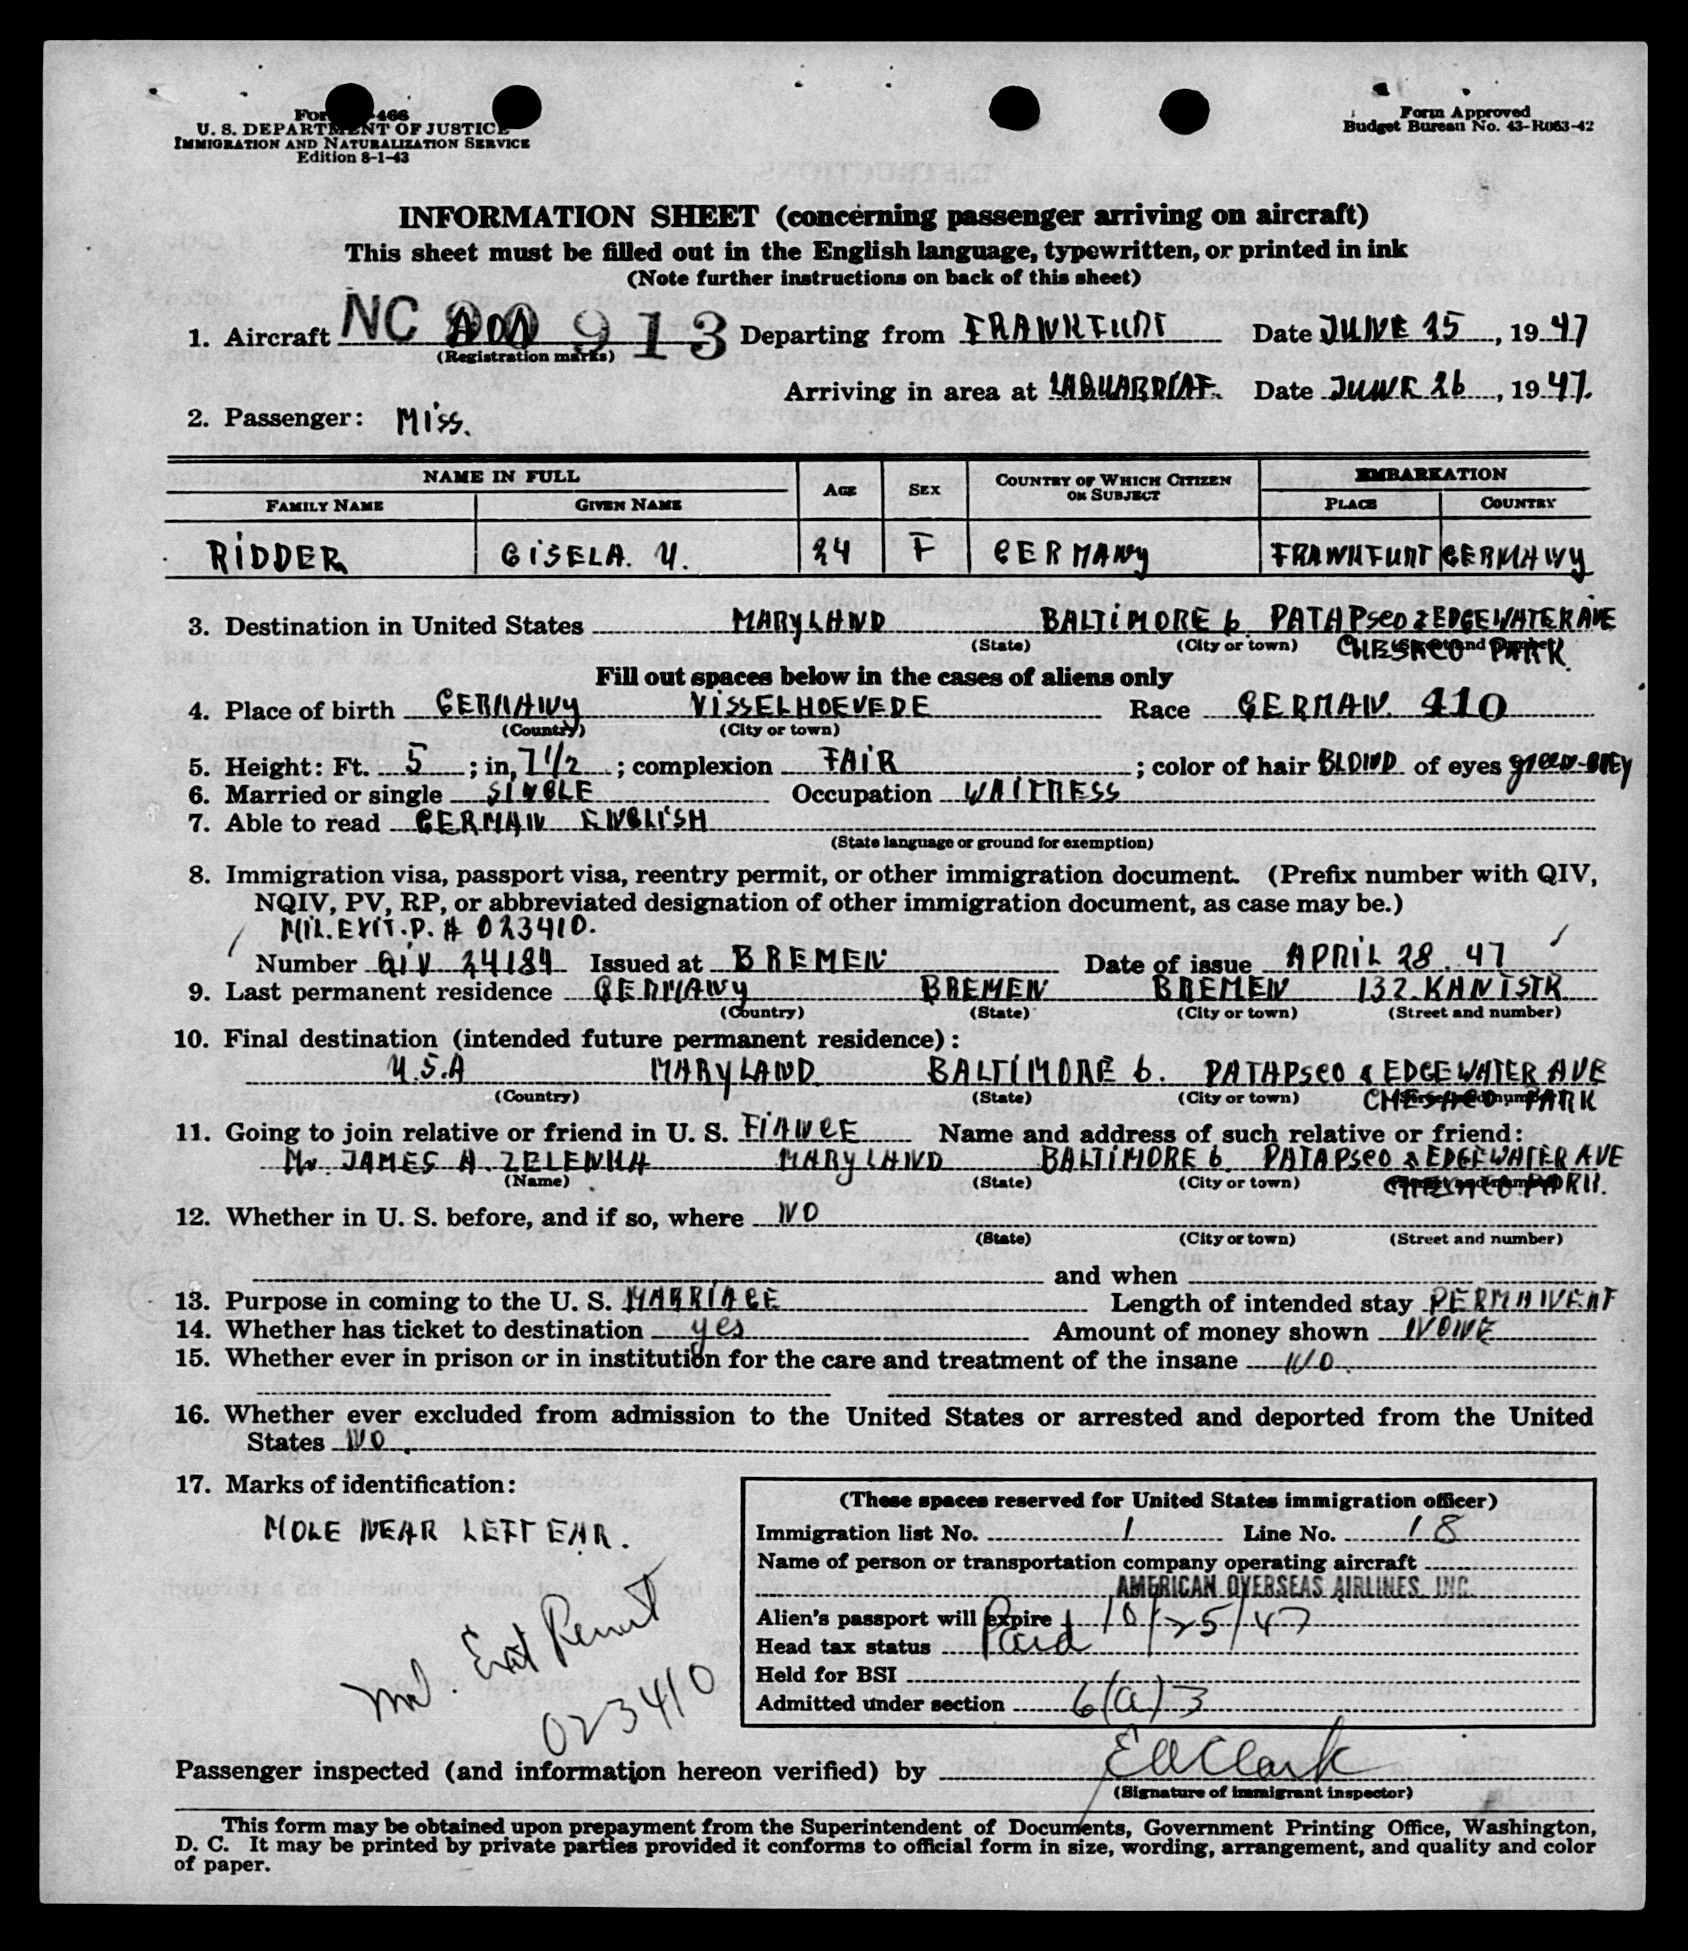 Form 466
U. S. DEPARTMENT OF JUSTICE
IMMIGRATION AND NATURALIZATION SERVICE
Edition 8-1-43
Form Approved
Budget Bureau No. 43-R063-42
INFORMATION SHEET (concerning passenger arriving on aircraft)
This sheet must be filled out in the English language, typewritten, or printed in ink
(Note further instructions on back of this sheet)
1. Aircraft NC 90 913 Departing from FRANKFURT Date JUNE 25, 1947
(Registration marks)
Arriving in area at LAGUARDIA F. Date JUNE 26, 1947.
2. Passenger: Miss.
NAME IN FULL AGE SEX COUNTRY OF WHICH CITIZEN OR SUBJECT EMBARKATION
FAMILY NAME GIVEN NAME PLACE COUNTRY
RIDDER GISELA. U. 24 F GERMANY FRANKFURT GERMANY
3. Destination in United States MARYLAND BALTIMORE 6 PATAPSCO & EDGEWATER AVE
(State) (City or town) (Street and number) CHESACO PARK
Fill out spaces below in the cases of aliens only
4. Place of birth GERMANY VISSELHOEVEDE Race GERMAN. 410
(Country) (City or town)
5. Height: Ft. 5; in, 7 1/2; complexion FAIR; color of hair BLOND of eyes green-GREY
6. Married or single SINGLE Occupation WAITRESS
7. Able to read GERMAN ENGLISH
(State language or ground for exemption)
8. Immigration visa, passport visa, reentry permit, or other immigration document. (Prefix number with QIV,
NQIV, PV, RP, or abbreviated designation of other immigration document, as case may be.)
MIL. EXIT. P. # 023410.
Number QIV 24184 Issued at BREMEN Date of issue APRIL 28. 47
9. Last permanent residence GERMANY BREMEN BREMEN 132. KANTSTR
(Country) (State) (City or town) (Street and number)
10. Final destination (intended future permanent residence):
U.S.A MARYLAND BALTIMORE 6. PATAPSCO & EDGEWATER AVE
(Country) (State) (City or town) (Street and number) CHESACO PARK
11. Going to join relative or friend in U. S. FIANCE Name and address of such relative or friend:
Mr. JAMES A. ZELENKA MARYLAND BALTIMORE 6 PATAPSCO & EDGEWATER AVE
(Name) (State) (City or town) (Street and number) CHESACO PARK.
12. Whether in U. S. before, and if so, where NO
(State) (City or town) (Street and number)
and when
13. Purpose in coming to the U. S. MARRIAGE Length of intended stay PERMANENT
14. Whether has ticket to destination yes Amount of money shown NONE
15. Whether ever in prison or in institution for the care and treatment of the insane NO.
16. Whether ever excluded from admission to the United States or arrested and deported from the United
States NO.
17. Marks of identification:
MOLE NEAR LEFT EAR.
Exit Permit
023410
(These spaces reserved for United States immigration officer)
Immigration list No. 1 Line No. 18
Name of person or transportation company operating aircraft
AMERICAN OVERSEAS AIRLINES, INC.
Alien's passport will expire 10/25/47
Head tax status Paid
Held for BSI
Admitted under section 6(a)3
Passenger inspected (and information hereon verified) by E A Clark
(Signature of immigrant inspector)
This form may be obtained upon prepayment from the Superintendent of Documents, Government Printing Office, Washington,
D. C. It may be printed by private parties provided it conforms to official form in size, wording, arrangement, and quality and color
of paper.